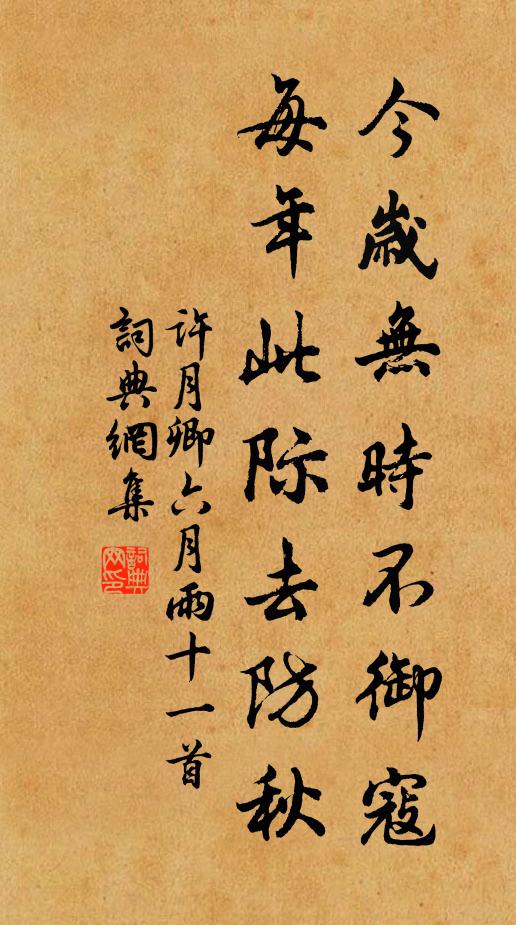 今歲無時不御寇
每年此际去防秋
許月卿六月雨十一首
詞典網集
詞典网印